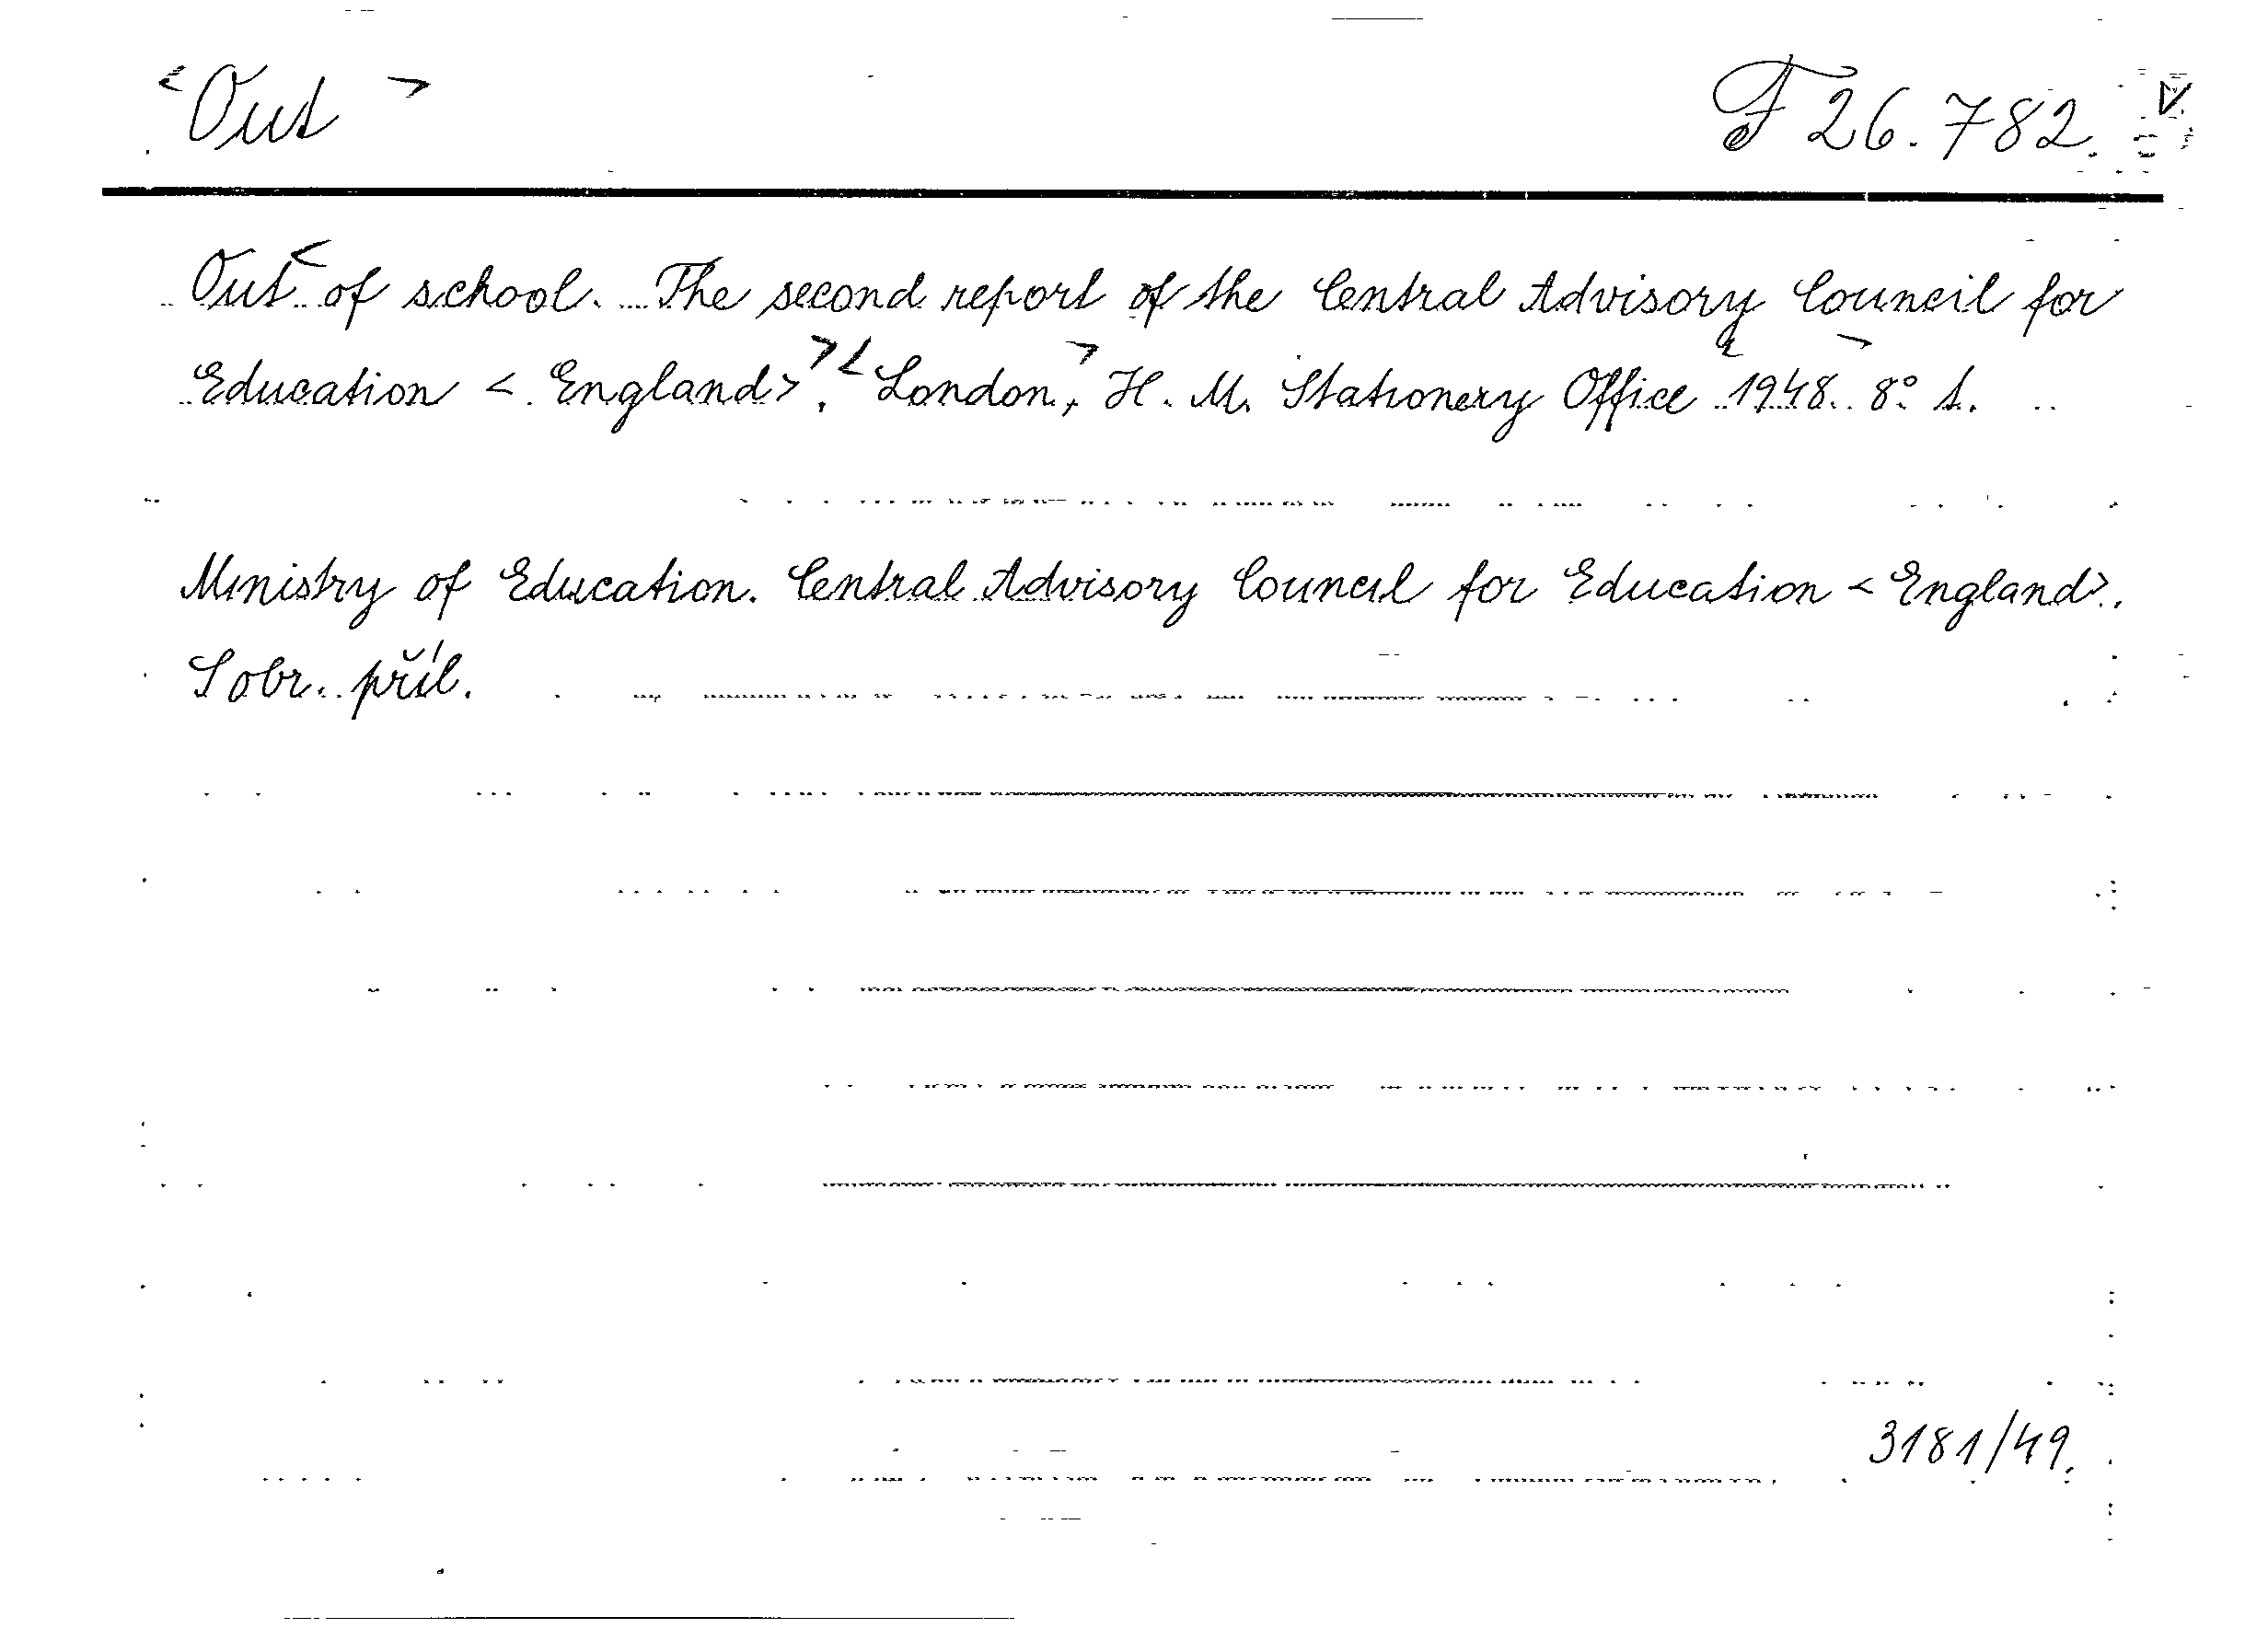 <Out>
F 26.782. V
Out of school. The second report of the Central Advisory Council for
Education <England>. London, H. M. Stationery Office 1948. 8° s.
Ministry of Education. Central Advisory Council for Education <England>.
S obr. příl.
3181/49.